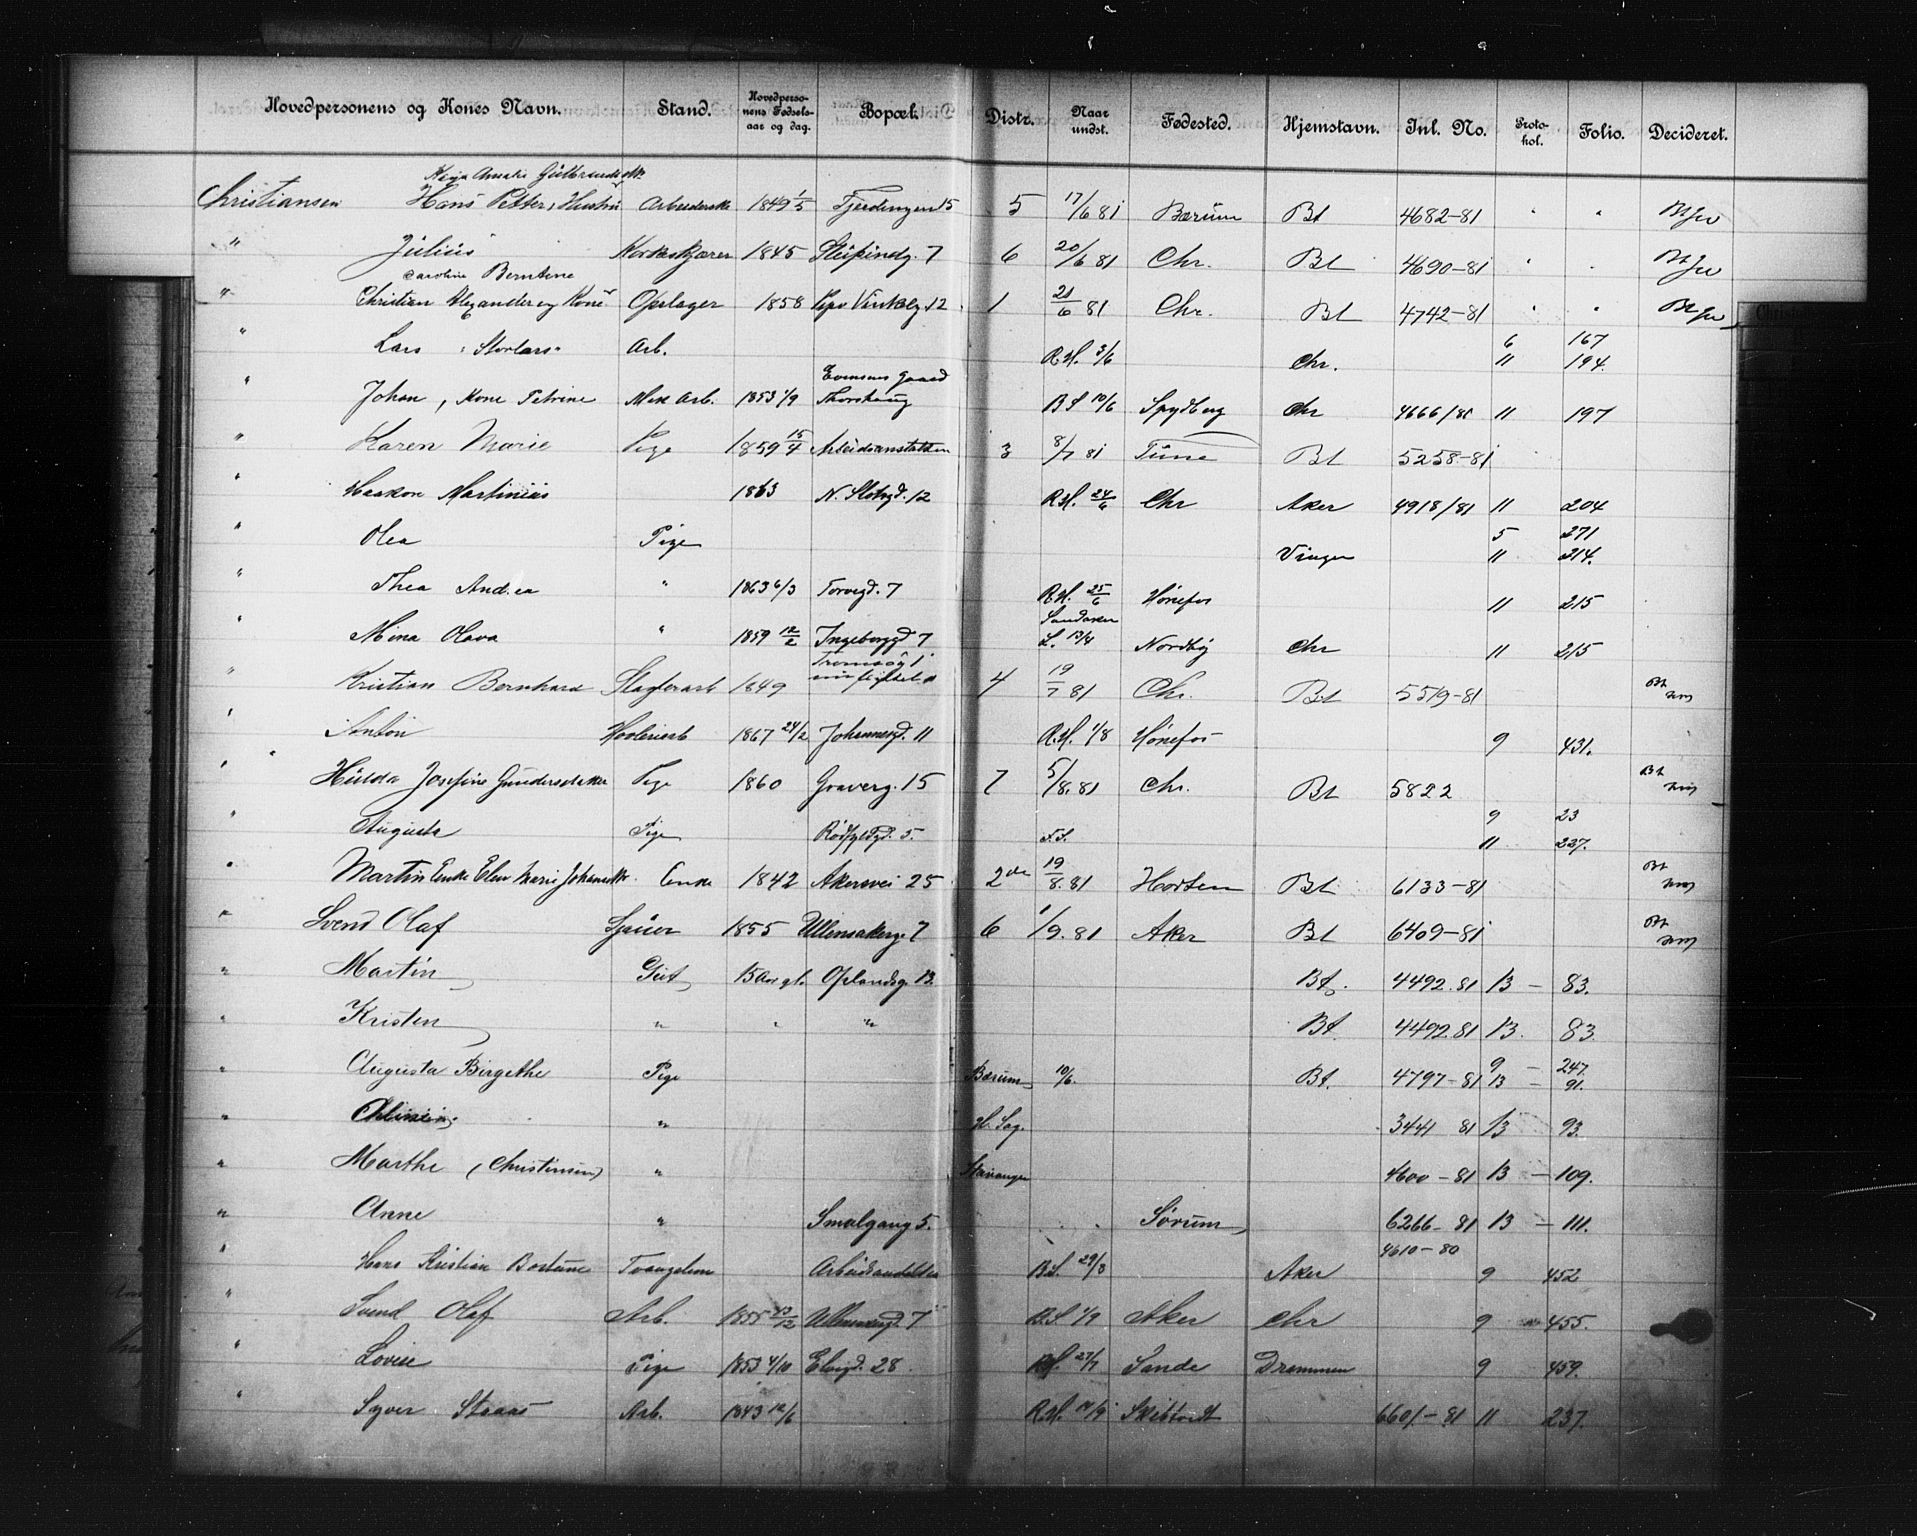 Hovedpersonens og Kones Navn. Stand. Hovedpersonens Fødselsaar og dag. Bopæl. Distr. Naar undst. Fødested. Hjemstavn. Inl. No. Protokol. Folio. Decideret.
Christiansen Hans Petter, Hustru 1849 1/5 Fjerdingen 15 5 17/6 81 Bærum Bt 4682-81 " "
" Julius Korkeskjærer 1845 7 6 20/6 81 Chr. Bt 4690-81 " "
Caroline Berntine
" Christian Alexander og Kone Opslager 1858 12 1 21/6 81 Chr. Bt 4742-81 " "
" Lars "Storlars" Arb. R.H. 3/6 Chr. 6 167
11 194.
" Johan, Kone Petrine Mek Arb. 1853 1/9 Evensens Gaard Thorshaug B S 10/6 Spydberg Chr 4666/81 11 197
" Karen Marie Pige 1859 15/4 Arbeidsanstalten 3 8/7 81 Tune Bt 5258-81
" Haakon Martinius 1863 N. Slotsgd. 12 R.H. 24/6 Chr Aker 4918/81 11 204
" Olea Pige Vinger 5 271
11 214.
" Thea Andrea " 1863 6/3 Torvgd. 7 R.H. 25/6 Hønefos 11 215
" Mina Olava " 1859 12/2 Ingeborggd 7 Sandaker Nordby Chr 11 215
" Kristian Bernhard Slagterarb 1849 Tromsøg 1 4 19/7 81 Chr. Bt 5519-81 Bt
" Anton Høvleriarb 1867 24/2 Johannesgd. 11 R.H. 1/8 Hønefos 9 431.
" Hulda Josefine Gundersdatter Pige 1860 Graverg. 15 7 5/8. 81 Chr. Bt 5822 Bt
" Augusta Pige Rødfyldgd. 5. F.S. 9 23
11 227.
" Martin Enke Elen Marie Johansdtr. Enke 1842 Akersvei 25 2de 19/8. 81 Horten Bt 6133-81 Bt
" Svend Olaf Sjauer 1855 Ullensakerg. 7 6 1/9. 81 Aker Bt 6409-81 Bt
" Martin Gut 15 Aar gl. Oplandsg. 13. Bt. 4492.81 13 – 83.
" Kristen " " " Bt. 4492.81 13. 83.
" Augusta Birgethe Pige Bærum 10/6. Bt. 4797-81 9 – 247.
13 – 91.
" " H. Sag. 3441 81 13 93.
" Marthe (Christinsen) " Stavanger 4600-81 13 – 109.
" Anne " Smalgang 5. Sørum 6266-81 13 – 111.
4610-80
" Hans Kristian Tvangslem B.S. 29/8 Aker 9 452
" Svend Olaf Arb. 1855 13/12 7 B.S 1/9 Aker Chr 9 455.
" Lovise Pige 1853 4/10 Elvegd. 28 27/7 Sande Drammen 9 459.
" Syver Staaes Arb. 1843 12/6 R.H. Skibtvedt 6601-81 11 237.